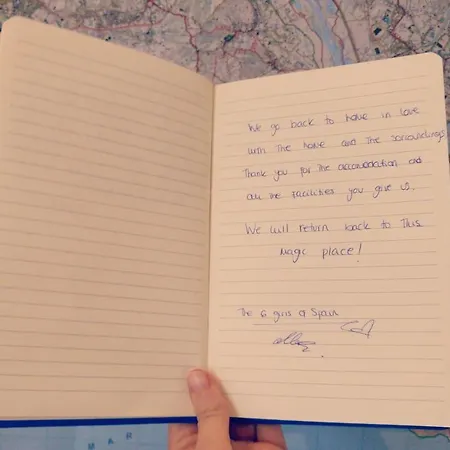 We go back to home in love
with the home and the sorroundings
Thank you for the accomodation and
all the facilities you give us.
We will return back to this
magic place!
The 6 girls of Spain
MAR